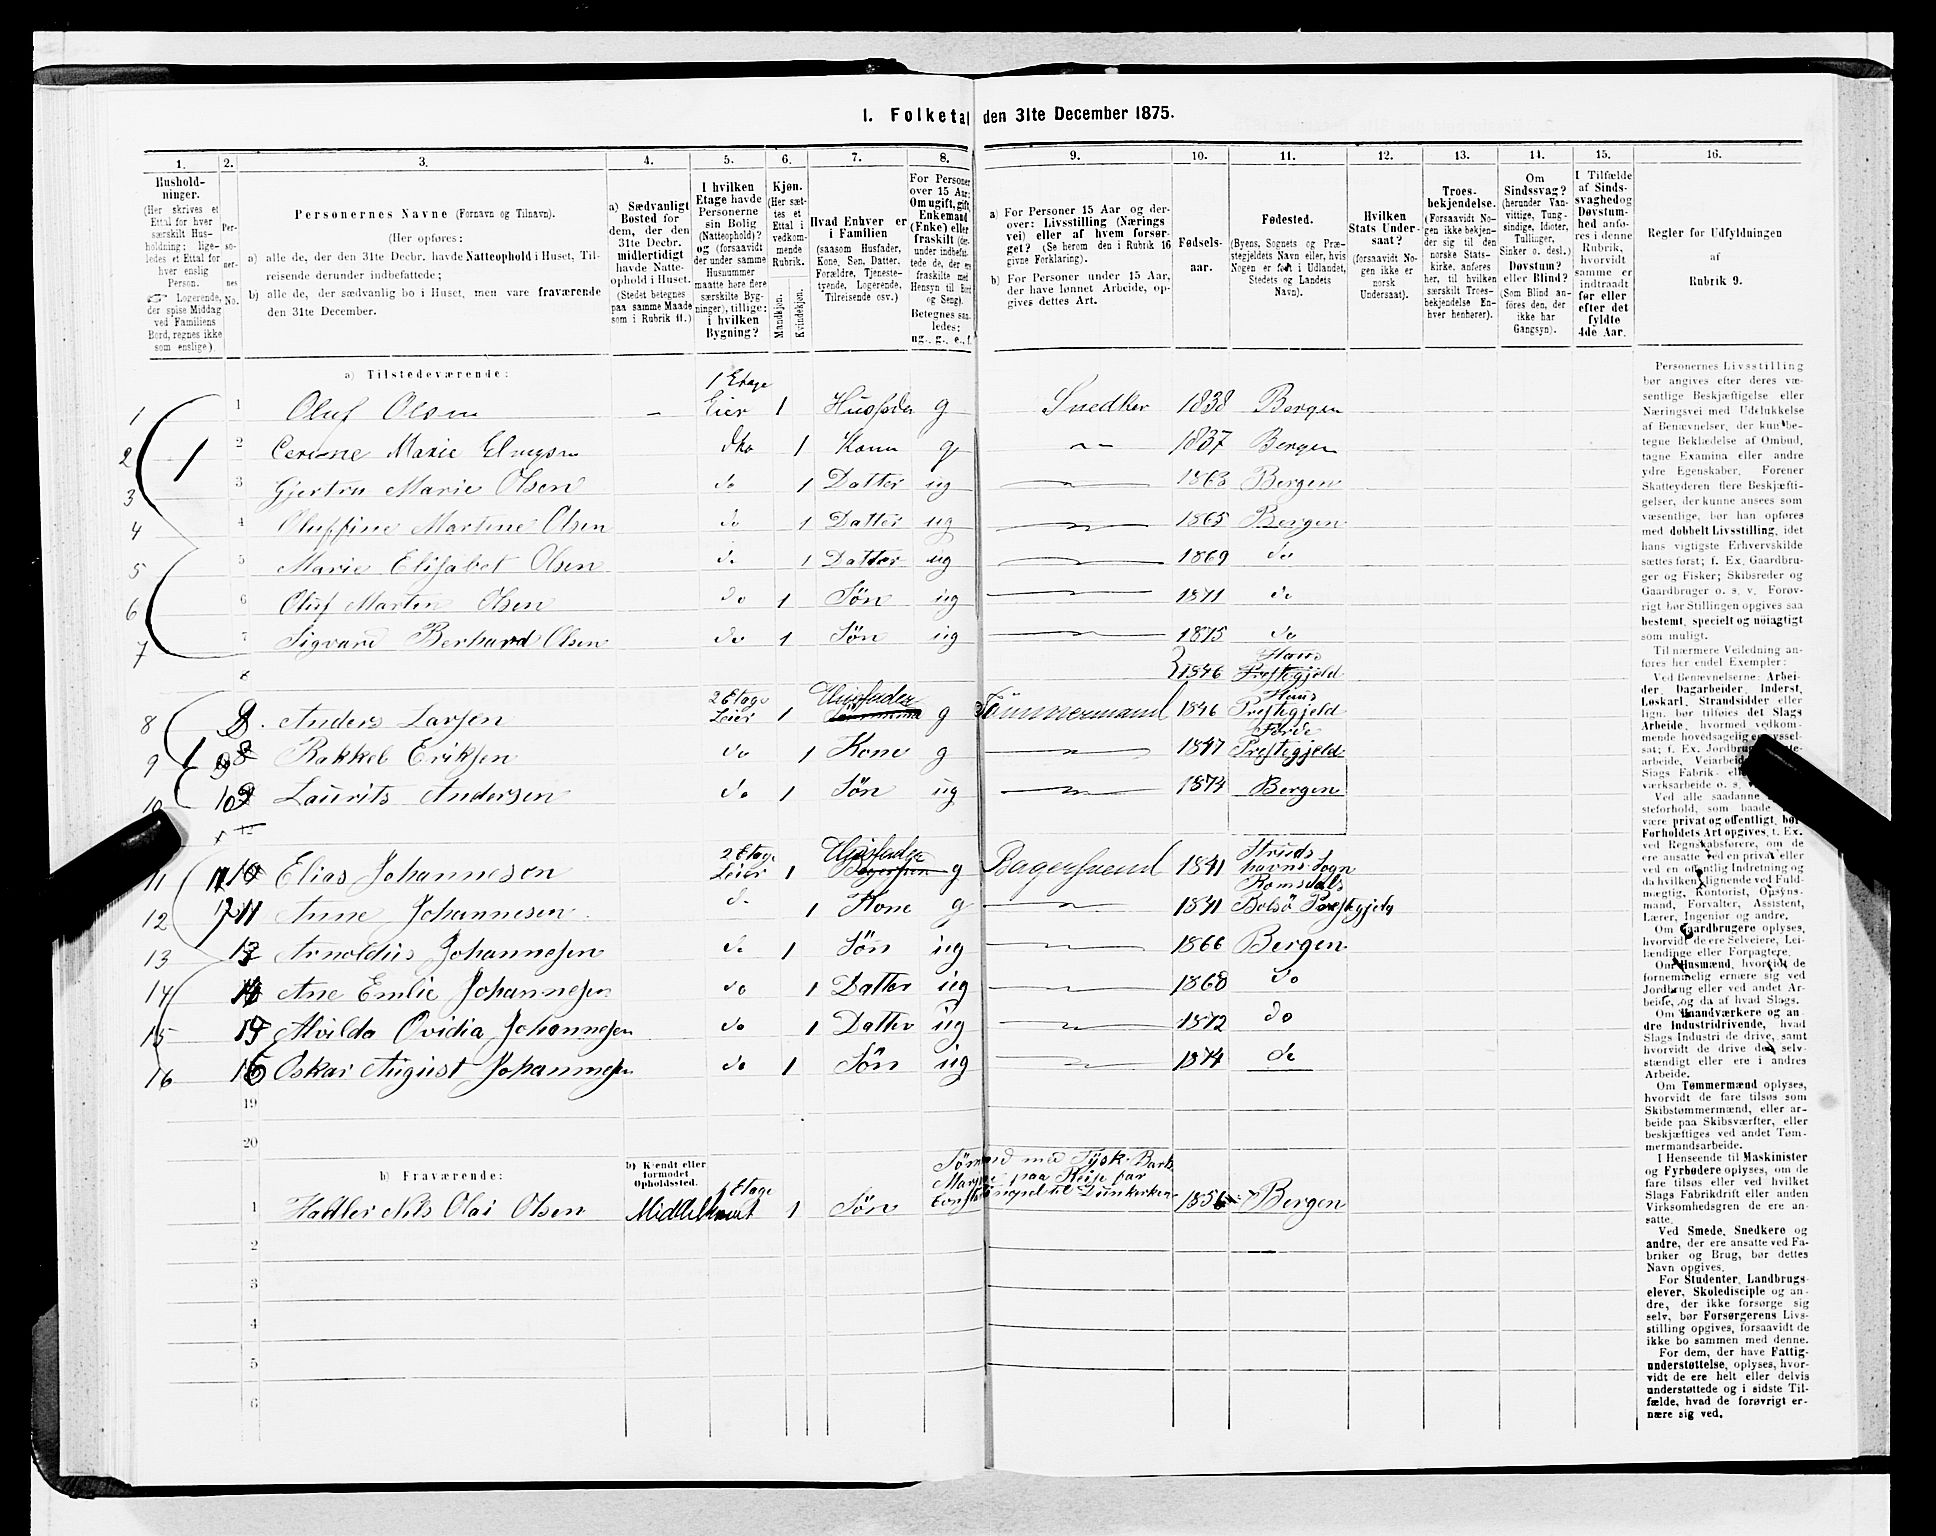 I. Folketal den 31te December 1875.
1. 2. 3. 4. 5. 6. 7. 8. 9. 10. 11. 12. 13. 14. 15. 16.
Hushold-
ninger.
(Her skrives et
Ettal for hver
særskilt Hus-
holdning; lige-
ledes et Ettal for
hver enslig
Person.
☞ Logerende,
der spise Middag
ved Familiens
Bord, regnes ikke
som enslige).
Per-
so-
ner-
nes
No.
Personernes Navne (Fornavn og Tilnavn).
(Her opføres:
a) alle de, der den 31te Decbr. havde Natteophold i Huset, Til-
reisende derunder indbefattede;
b) alle de, der sædvanlig bo i Huset, men vare fraværende
den 31te December.
a) Sædvanligt
Bosted for
dem, der den
31te Decbr.
midlertidigt
havde Natte-
ophold i Huset.
(Stedet betegnes
paa samme Maade
som i Rubrik 11.)
I hvilken
Etage havde
Personerne
sin Bolig
(Natteophold)?
og (forsaavidt
der under samme
Husnummer
maatte høre flere
særskilte Byg-
ninger), tillige:
i hvilken
Bygning?
Kjøn.
(Her sæt-
tes et
Ettal i
vedkom-
mende
Rubrik.
Mandkjøn.
Kvindekjøn.
Hvad Enhver er
i Familien
(saasom Husfader,
Kone, Søn, Datter,
Forældre, Tjeneste-
tyende, Logerende,
Tilreisende osv.)
For Personer
over 15 Aar:
Om ugift, gift,
Enkemand
(Enke) eller
fraskilt (der-
under indbefat-
tede de, der ere
fraskilte med
Hensyn til Bord
og Seng).
Betegnes saa-
ledes:
ug., g., e., f.
a) For Personer 15 Aar og der-
over: Livsstilling (Nærings-
vei) eller af hvem forsør-
get? (Se herom den i Rubrik 16
givne Forklaring).
b) For Personer under 15 Aar,
der have lønnet Arbeide, op-
gives dettes Art.
Fødsels-
aar.
Fødested.
(Byens, Sognets og Præ-
stegjeldets Navn eller, hvis
Nogen er født i Udlandet,
Stedets og Landets
Navn).
Hvilken
Stats Under-
saat?
(forsaavidt No-
gen ikke er
norsk
Undersaat).
Troes-
bekjendelse.
(Forsaavidt No-
gen ikke bekjen-
der sig til den
norske Stats-
kirke, anføres
her, til hvilken
særskilt Troes-
bekjendelse En-
hver henhører).
Om
Sindssvag?
(herunder Van-
vittige, Tung-
sindige, Idioter,
Tullinger,
Sinker o. desl.)
Døvstum?
eller Blind?
(Som Blind an-
føres den, der
ikke har
Gangsyn).
I Tilfælde
af Sinds-
svaghed og
Døvstum-
hed anfø-
res i denne
Rubrik,
hvorvidt
samme er
indtraadt
før eller
efter det
fyldte
4de Aar.
Regler for Udfyldningen
af
Rubrik 9.
a) Tilstedeværende:
1 Etage
1 1 Oluf Olsen - Eier 1 Husfader g Snedker 1838 Bergen
2 1 2 Cerine Marie dto 1 Kone g 1837 Bergen
3 3 Gjertru Marie Olsen do 1 Datter ug 1863 Bergen
4 4 Oluffine Martine Olsen do 1 Datter ug 1865 Bergen
5 5 Marie Elisabet Olsen do 1 Datter ug 1869 do
6 6 Oluf Martin Olsen do 1 Søn ug 1871 do
7 7 Sigvard Berhard Olsen do 1 Søn ug 1875 do
8 1846 Haus Prestegjeld
2 Etage Husfader Haus
8 8 Anders Larsen Leier 1 g Tømmermand 1846 Prestegjeld
Førde
9 1 9 Rakkel Eriksen do 1 Kone g 1847 Prestegjeld
10 10 Laurits Andersen do 1 Søn ug 1874 Bergen
2 Etage Husfader
11 11 Elias Johannesen Leier 1 g Bagersvend 1841 havns Sogn
Romsdals
12 12 Anne Johannesen do 1 Kone g 1841 Bolsø Prestegjeld
13 13 Arnoldus Johannesen do 1 Søn ug 1866 Bergen
14 14 Ane Emlie Johannesen do 1 Datter ug 1868 do
15 15 Alvilda Ovidia Johannesen do 1 Datter ug 1872 do
16 16 Oskar August Johannesen do 1 Søn ug 1874 do
19
20
b) Fraværende:
b) Kjendt eller
formodet
Opholdssted.
1 Etage
Sømand med Tysk Bark
Marie paa Reise far
Constantinopel til Dunkerken
1 Nils Olai Olsen Middelhavet 1 Søn 1856 Bergen
2
3
4
5
6
Personernes Livsstilling
bør angives efter deres væ-
sentlige Beskjæftigelse eller
Næringsvei med Udelukkelse
af Benævnelser, der kun be-
tegne Beklædelse af Ombud,
tagne Examina eller andre
ydre Egenskaber. Forener
Skatteyderen flere Beskjæfti-
gelser, der kunne ansees som
væsentlige, bør han opføres
med dobbelt Livsstilling, idet
hans vigtigste Erhvervskilde
sættes først; f. Ex. Gaardbru-
ger og Fisker; Skibsreder og
Gaardbruger o. s. v. Forøv-
rigt bør Stillingen opgives saa
bestemt, specielt og nøiagtigt
som muligt.
Til nærmere Veiledning an-
føres her endel Exempler:
Ved Benævnelserne: Arbei-
der, Dagarbeider, Inderst,
Løskarl, Strandsidder eller
lign. bør tilføies det Slags
Arbeide, hvormed vedkom-
mende hovedsagelig er syssel-
sat; f. Ex. Jordbrug
arbeide, Veiarbeide
Slags Fabrik-
værksarbeide o. s. v.
Ved alle saadanne
steforhold, som baade
være privat og offentligt, bør
Forholdets Art opgives, t. Ex.
ved Regnskabsførere, om de
ere ansatte ved en privat eller
ved en offentlig Indretning og
da hvilken; lignende ved Fuld-
mægtig, Kontorist, Opsyns-
mand, Forvalter, Assistent,
Lærer, Ingeniør og andre.
Om Gaardbrugere oplyses,
hvorvidt de ere Selveiere, Lei-
lændinge eller Forpagtere.
Om Husmænd, hvorvidt de
fornemmelig ernære sig ved
Jordbrug eller ved andet Ar-
beide, og da af hvad Slags.
Om Haandværkere og an-
dre Industridrivende, hvad
Slags Industri de drive, samt
hvorvidt de drive den selv-
stændigt eller ere i andres
Arbeide.
Om Tømmermænd oplyses,
hvorvidt de fare tilsøs som
Skibstømmermænd, eller ar-
beide paa Skibsværfter, eller
beskjæftiges ved andet Tøm-
mermandsarbeide.
I Henseende til Maskinister
og Fyrbødere oplyses, om de
fare tilsøs eller ved hvilket
Slags Fabrikdrift eller anden
Virksomhedsgren de ere an-
satte.
Ved Smede, Snedkere og
andre, der ere ansatte ved Fa-
briker og Brug, bør dettes
Navn opgives.
For Studenter, Landbrugs-
elever, Skoledisciple og an-
dre, der ikke forsørge sig
selv, bør Forsørgerens Livs-
stilling opgives, forsaavidt de
ikke bo sammen med denne.
For dem, der have Fattig-
understøttelse, oplyses, hvor-
vidt de ere helt eller delvis
understøttede og i sidste Til-
fælde, hvad de forøvrigt er-
nære sig ved.